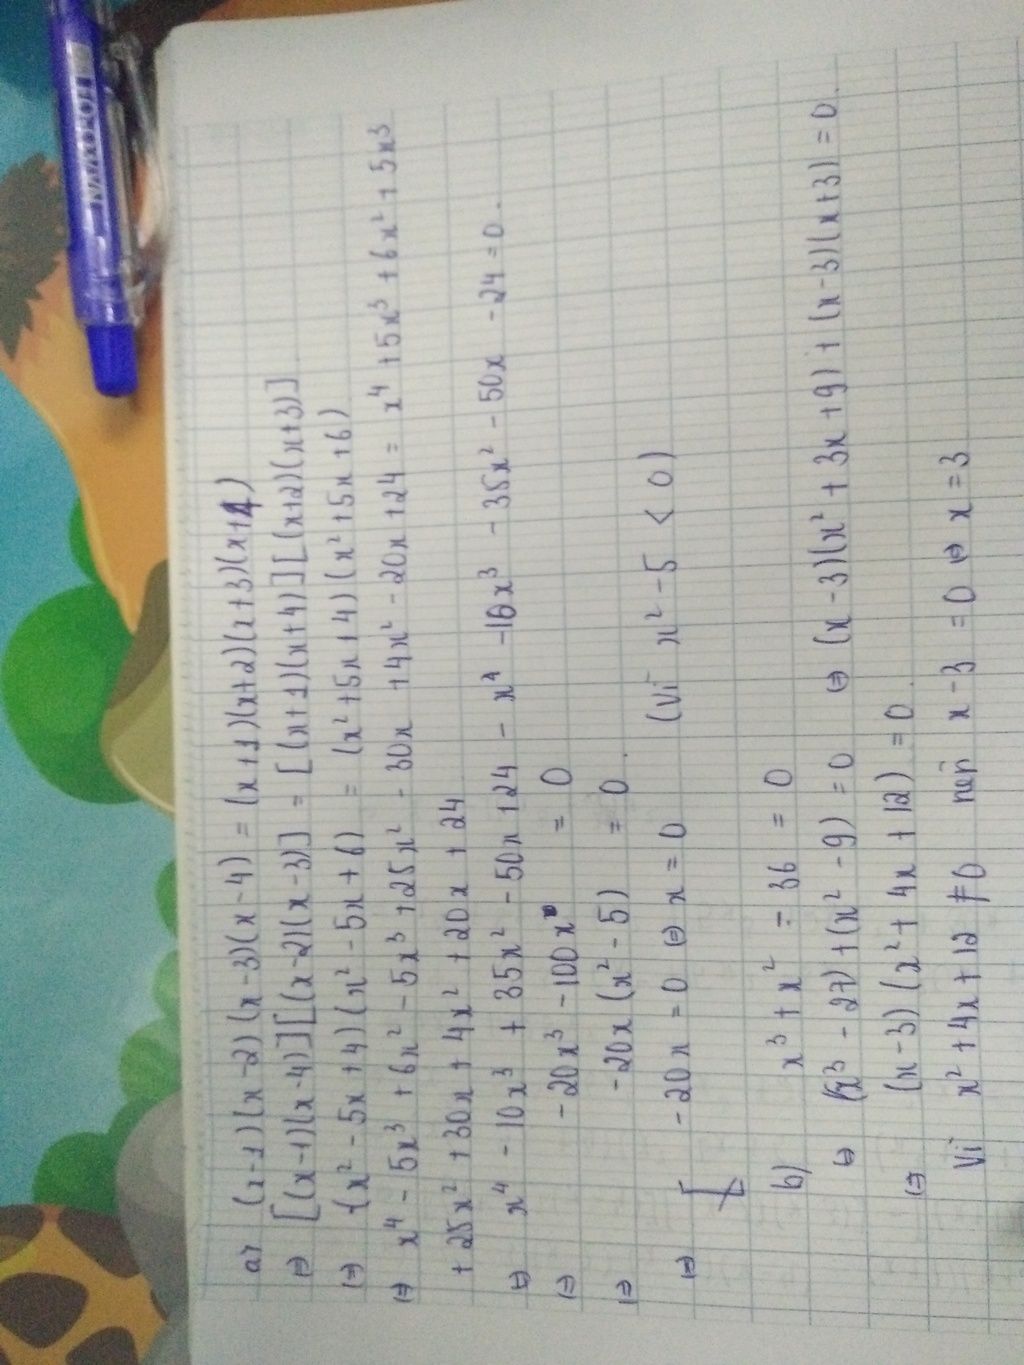 a) (x-1)(x-2)(x-3)(x-4) = (x+1)(x+2)(x+3)(x+4)
⇔ [(x-1)(x-4)][(x-2)(x-3)] = [(x+1)(x+4)][(x+2)(x+3)]
⇔ (x² - 5x + 4)(x² - 5x + 6) = (x² + 5x + 4)(x² + 5x + 6)
⇔ x⁴ - 5x³ + 6x² - 5x³ + 25x² - 30x + 4x² - 20x + 24 = x⁴ + 5x³ + 6x² + 5x³
+ 25x² + 30x + 4x² + 20x + 24
⇔ x⁴ - 10x³ + 35x² - 50x + 24 - x⁴ - 10x³ - 35x² - 50x - 24 = 0.
⇔ -20x³ - 100x = 0
⇔ -20x (x² - 5) = 0.
⇔ -20x = 0 ⇔ x = 0 (Vì x² - 5 < 0)
b) x³ + x² - 36 = 0
⇔ (x³ - 27) + (x² - 9) = 0 ⇔ (x - 3)(x² + 3x + 9) + (x - 3)(x + 3) = 0.
⇔ (x - 3)(x² + 4x + 12) = 0.
Vì x² + 4x + 12 ≠ 0 nên x - 3 = 0 ⇔ x = 3